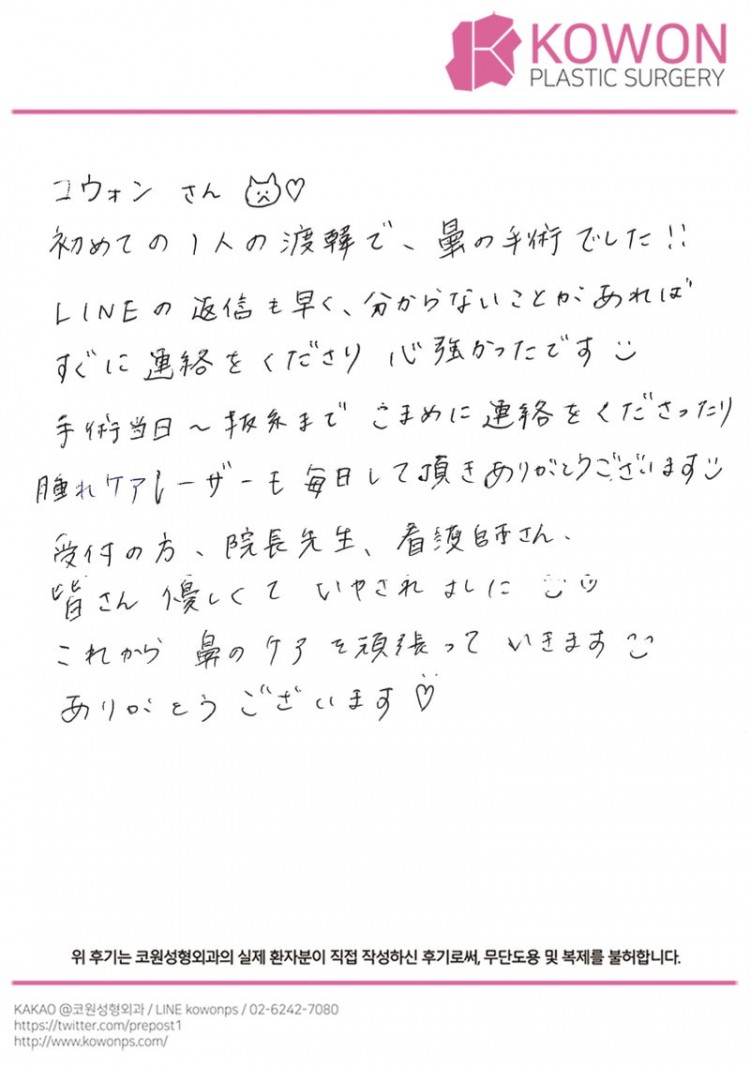 KOWON
PLASTIC SURGERY
コウォン さん ♡
初めての1人の渡韓で、鼻の手術でした!!
LINEの返信も早く、分からないことがあれば
すぐに連絡をくださり 心強かったです
手術当日〜抜糸まで こまめに連絡をくださったり
腫れケアレーザーも毎日して頂きありがとうございます
受付の方、院長先生、看護師さん、
皆さん優しくて いやされました
これから 鼻のケアを頑張って いきます
ありがとうございます♡
위 후기는 코원성형외과의 실제 환자분이 직접 작성하신 후기로써, 무단도용 및 복제를 불허합니다.
KAKAO @코원성형외과 / LINE kowonps / 02-6242-7080
https://twitter.com/prepost1
http://www.kowonps.com/